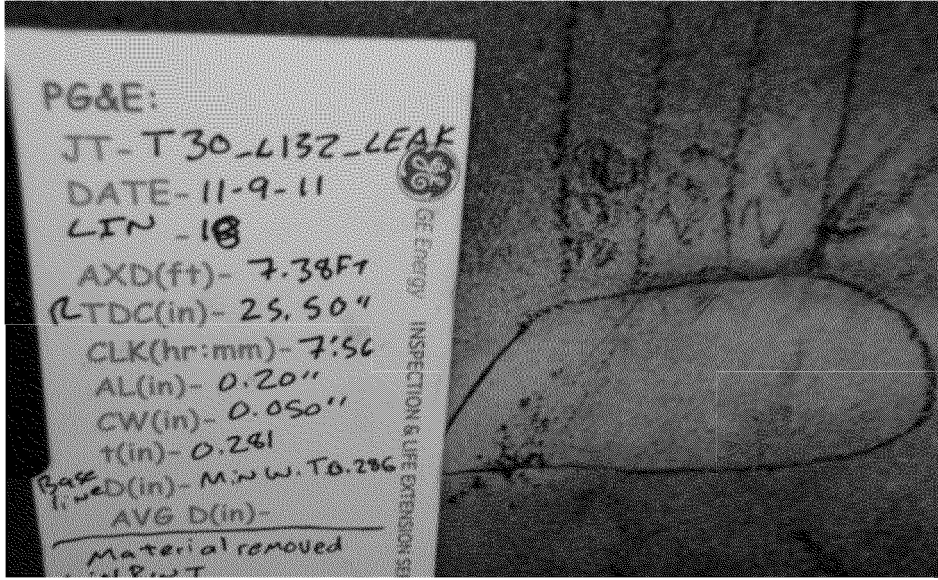 PG&E:
JT- T30_L132_LEAK
DATE- 11-9-11
LIN - 18
AXD(ft)- 7.38FT
RTDC(in)- 25.50"
CLK(hr:mm)- 7:56
AL(in)- 0.20"
CW(in)- 0.050"
t(in)- 0.281
Base line D(in)- Min W.T 0.286
AVG D(in)-
Material removed
GE Energy INSPECTION & LIFE EXTENSION